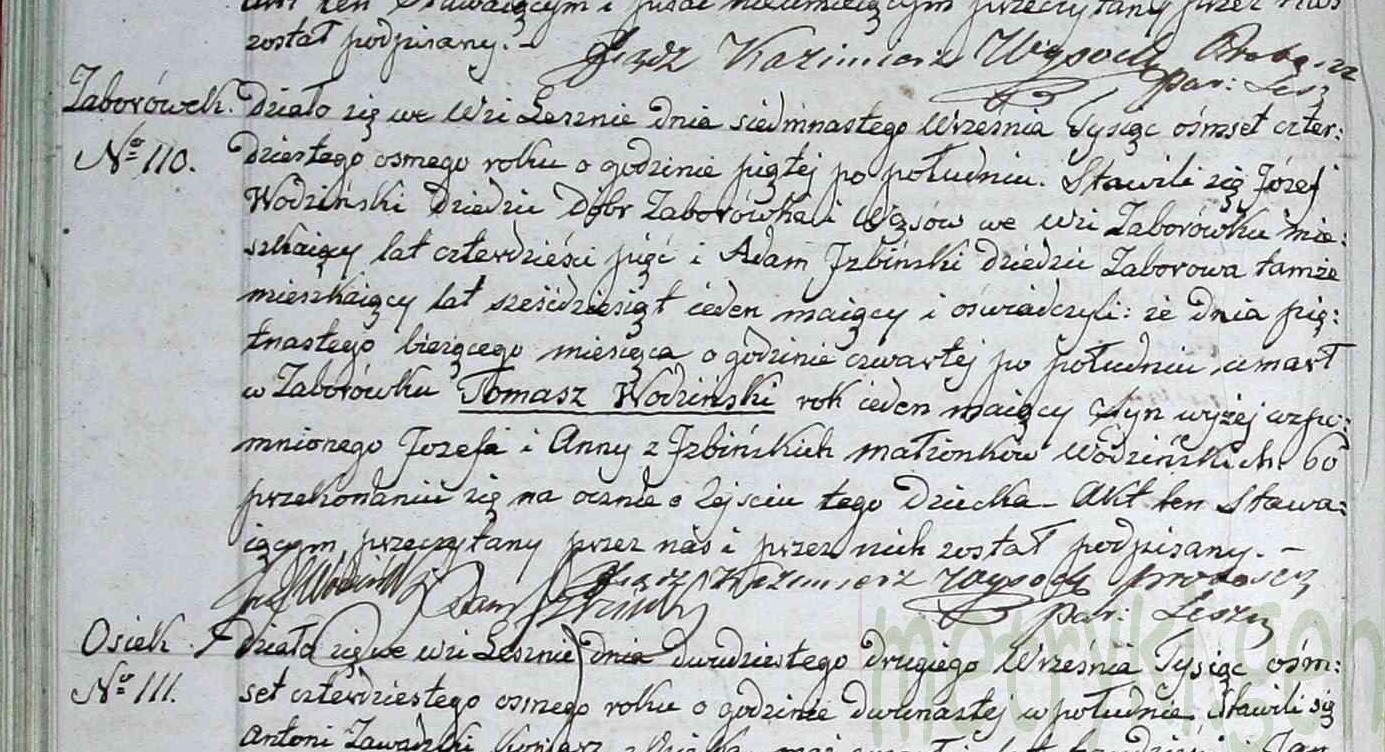 akt ten Stawaiącym i pisać nieumieiącym przeczytany przez Nas
został podpisany. - Xiądz Kazimierz Wysocki Probosz
par: Lesz
Zaborówek. Działo się we Wsi Lesznie dnia siedmnastego Września Tysiąc ośmset czter:
No 110. dziestego osmego roku o godzinie piątej po południu. Stawili się Józef
Wodziński dziedzic Dóbr Zaborówka i Wąsów we Wsi Zaborówku mie:
szkaiący lat czterdzieści pięć i Adam Izbiński dziedzic Zaborowa tamże
mieszkaiący lat sześćdziesiąt ieden maiący i oświadczyli: że dnia pię:
tnastego bieżącego miesiąca o godzinie czwartej po południu, umarł
w Zaborówku Tomasz Wodziński rok ieden maiący Syn wyżej wzpo:
mnionego Jozefa i Anny z Izbińskich małżonków Wodzińskich. Po
przekonaniu się na ocznie o zejściu tego dziecka - Akt ten Stawa:
iącym, przeczytany przez nas i przez nich został podpisany. -
Adam Izbiński Xiądz Kazimierz Wysocki proboszcz
par: Leszn
Osiek. Działo się we wsi Lesznie dnia dwudziestego drugiego Września Tysiąc ośm:
No 111. set czterdziestego osmego roku o godzinie dwunastej w południe Stawili się
Antoni Zawadzki
metryki.gen